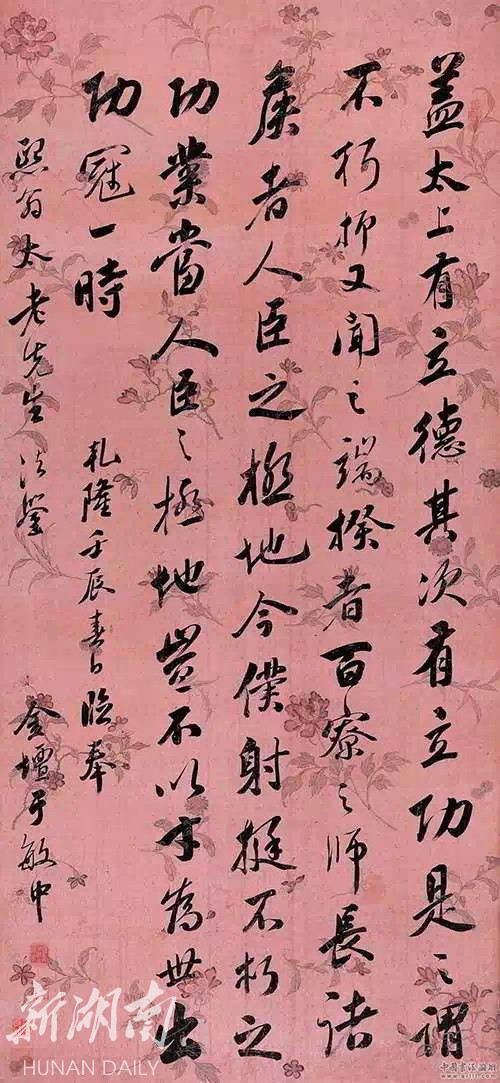 盖太上有立德其次有立功是之谓
不朽抑又闻之端揆者百寮之师長诸
矦者人臣之極地今僕射挺不朽之
功業當人臣之極地豈不以才為世出
功冠一時
乹隆壬辰春日临奉
熙翁太老先生法鉴
金壇于敏中
新湖南
HUNAN DAILY